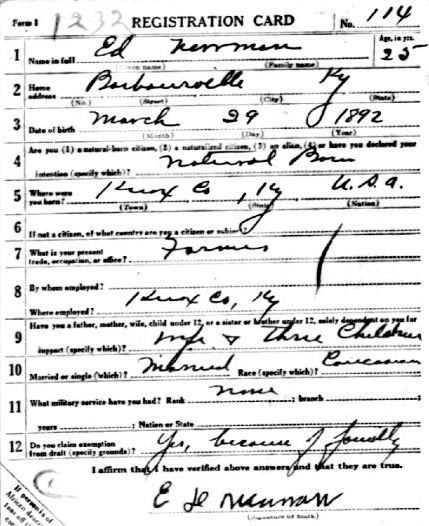 Form 1 1232 REGISTRATION CARD No. 114
1 Name in full Ed Newman Age, in yrs. 25
(Given name) (Family name)
2 Home address Barbourville Ky
(No.) (Street) (City) (State)
3 Date of birth March 29 1892
(Month) (Day) (Year)
Are you (1) a natural-born citizen, (2) a naturalized citizen, (3) an alien, (4) or have you declared your
4 intention (specify which)? Natural Born
5 Where were you born? Knox Co, Ky U.S.A.
(Town) (State) (Nation)
6 If not a citizen, of what country are you a citizen or subject?
7 What is your present trade, occupation, or office? Farmer
8 By whom employed?
Where employed? Knox Co, Ky
Have you a father, mother, wife, child under 12, or a sister or brother under 12, solely dependent on you for
9 support (specify which)? wife & three Children
10 Married or single (which)? Married Race (specify which)? Caucasian
11 What military service have you had? Rank none ; branch ;
years ; Nation or State
12 Do you claim exemption from draft (specify grounds)? Yes, because of family
I affirm that I have verified above answers and that they are true.
E
(Signature or mark)
If person is of
African descent
tear off